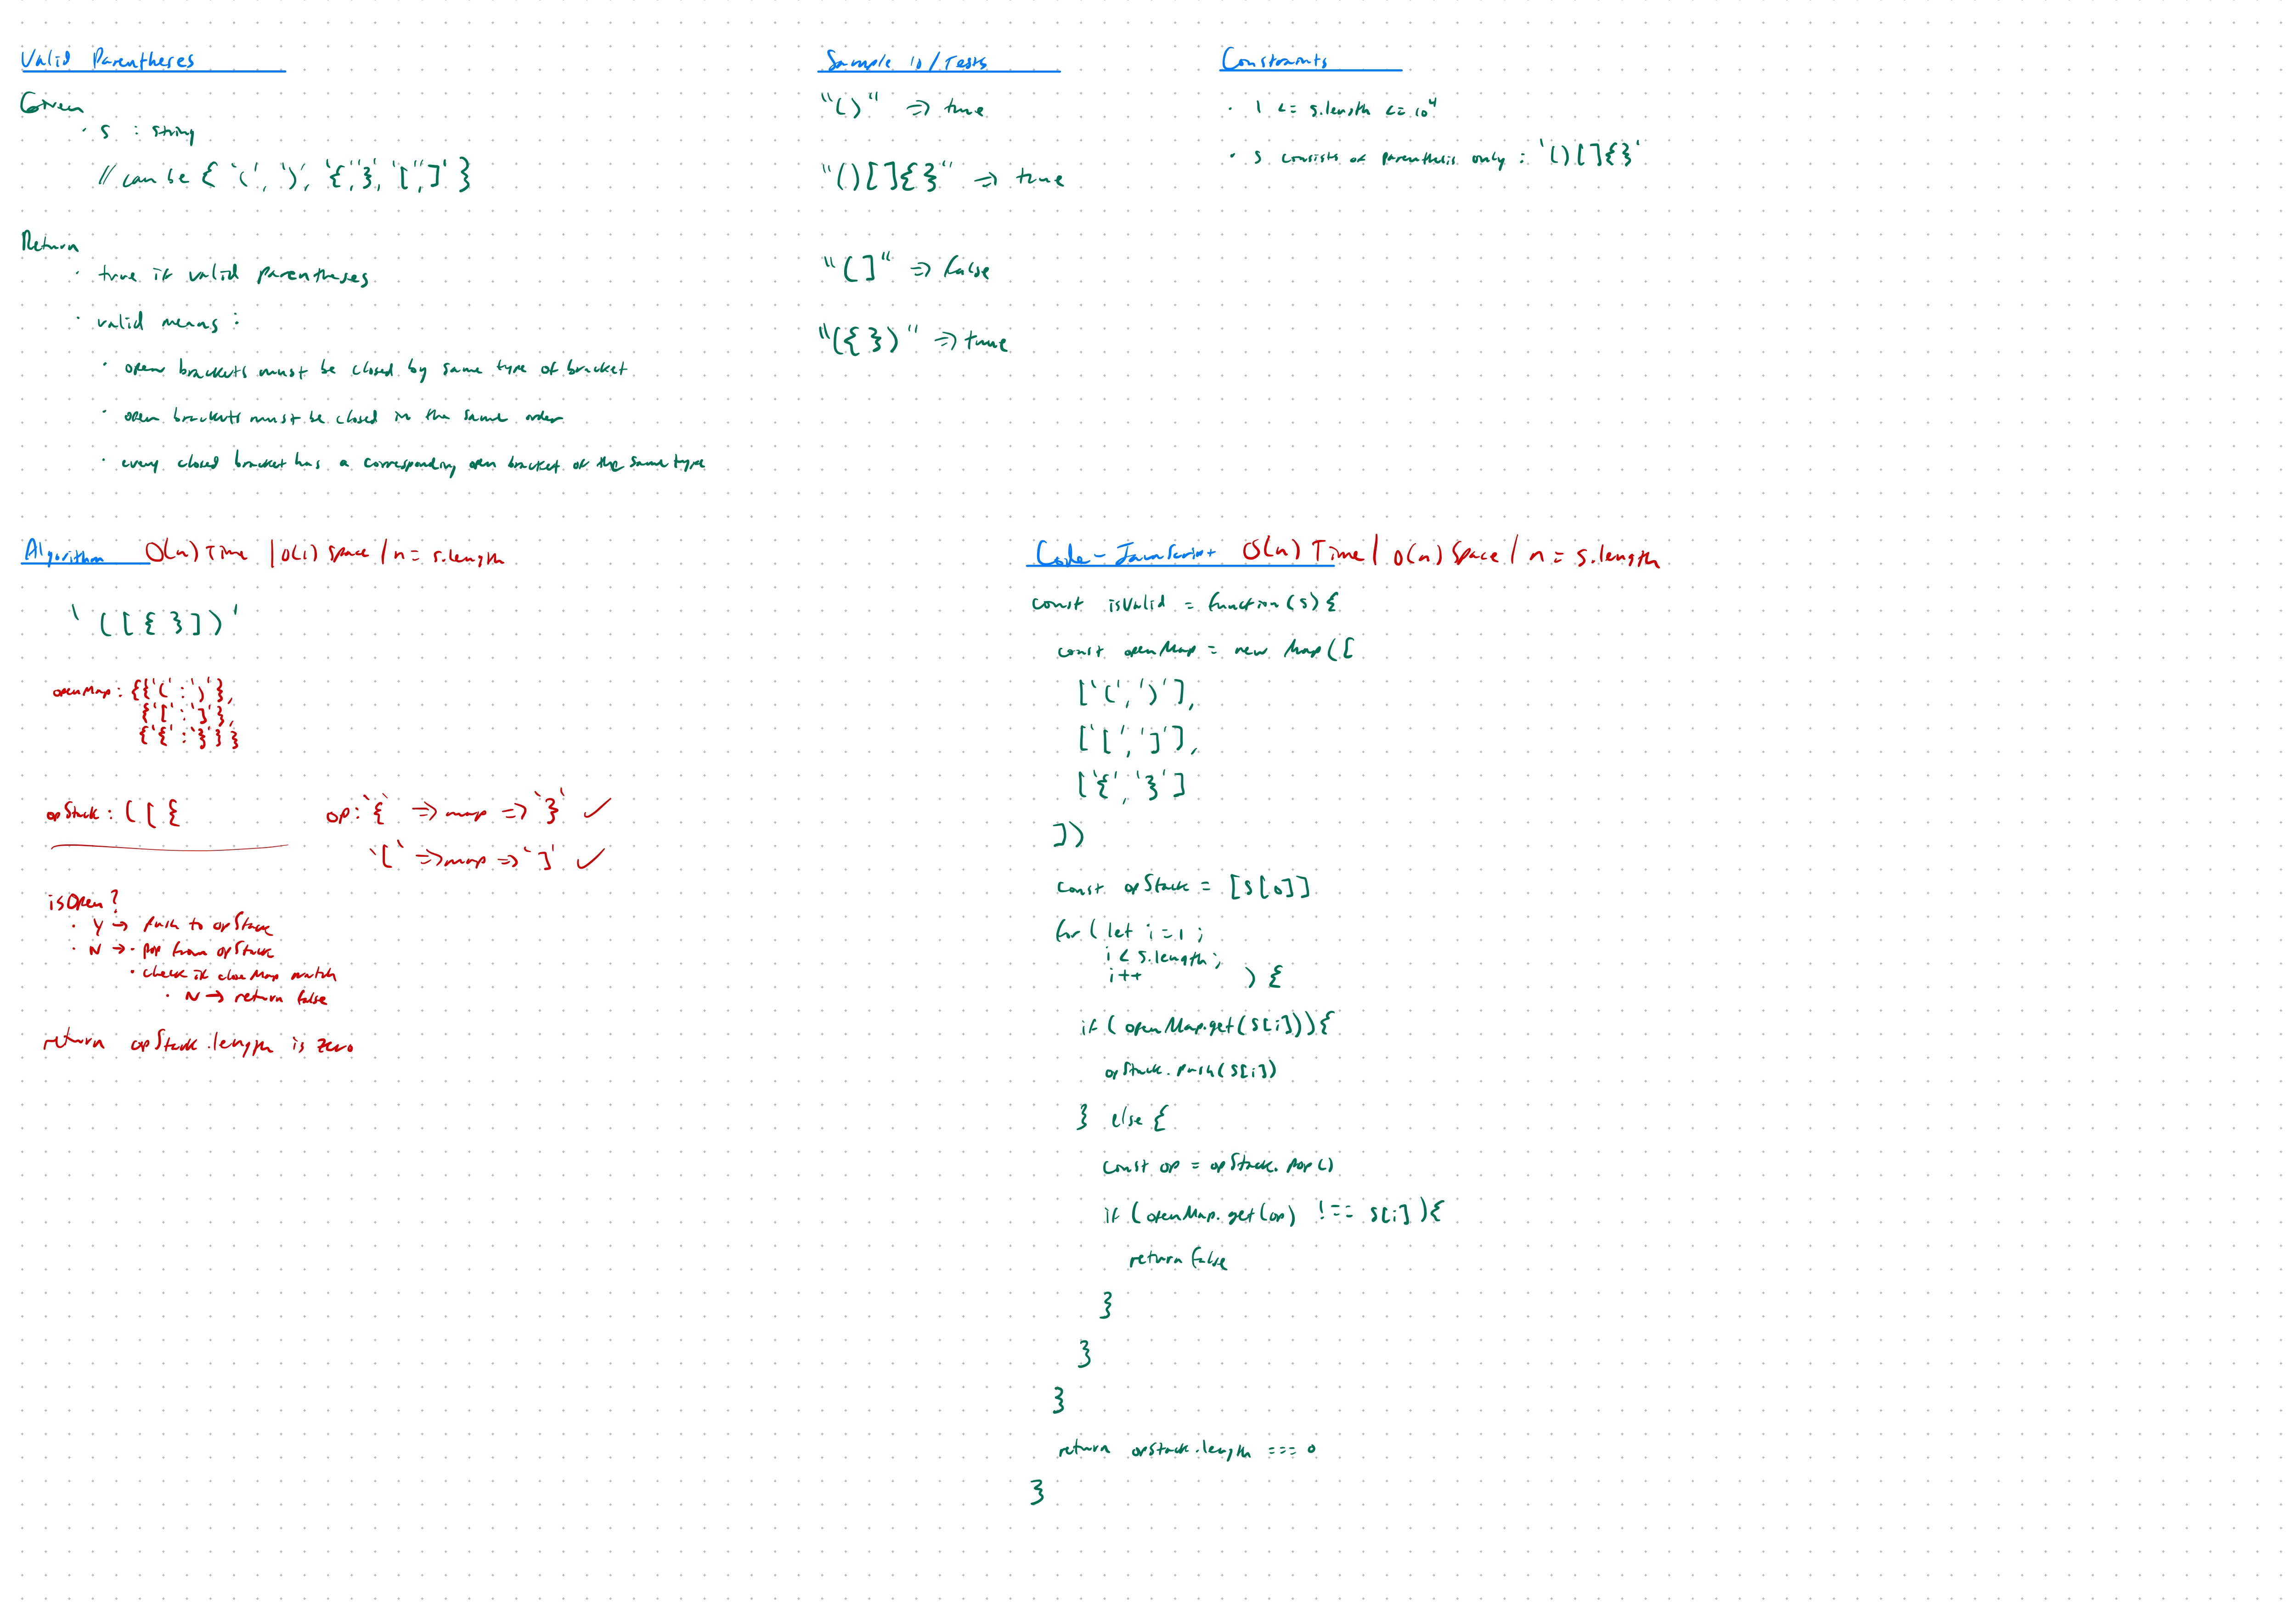 Valid Parentheses
Given
· s : string
// can be { '(', ')', '{', '}', '[', ']' }
Return
· true if valid parentheses
· valid means :
· open brackets must be closed by same type of bracket
· open brackets must be closed in the same order
· every closed bracket has a corresponding open bracket of the same type
Sample io / Tests
"()" => true
"()[]{}" => true
"(]" => false
"({})" => true
Constraints
· 1 <= s.length <= 10^4
· s consists of parenthesis only : '()[]{}'
Algorithm O(n) Time | O(1) Space / n = s.length
'([{}])'
openMap : {{'(' : ')'},
{'[' : ']'},
{'{' : '}'}}
opStack : ( [ {
op: '{' => map => '}' ✓
'[' => map => ']' ✓
isOpen?
· Y -> push to opStack
· N -> · pop from opStack
· check if closeMap match
· N -> return false
return opStack.length is zero
Code - JavaScript O(n) Time / O(n) Space / n = s.length
const isValid = function(s) {
const openMap = new Map([
['(', ')'],
['[', ']'],
['{', '}']
])
const opStack = [s[0]]
for ( let i = 1 ;
i < s.length;
i++ ) {
if ( openMap.get(s[i])) {
opStack.push(s[i])
} else {
const op = opStack.pop()
if (openMap.get(op) !== s[i] ) {
return false
}
}
}
return opStack.length === 0
}